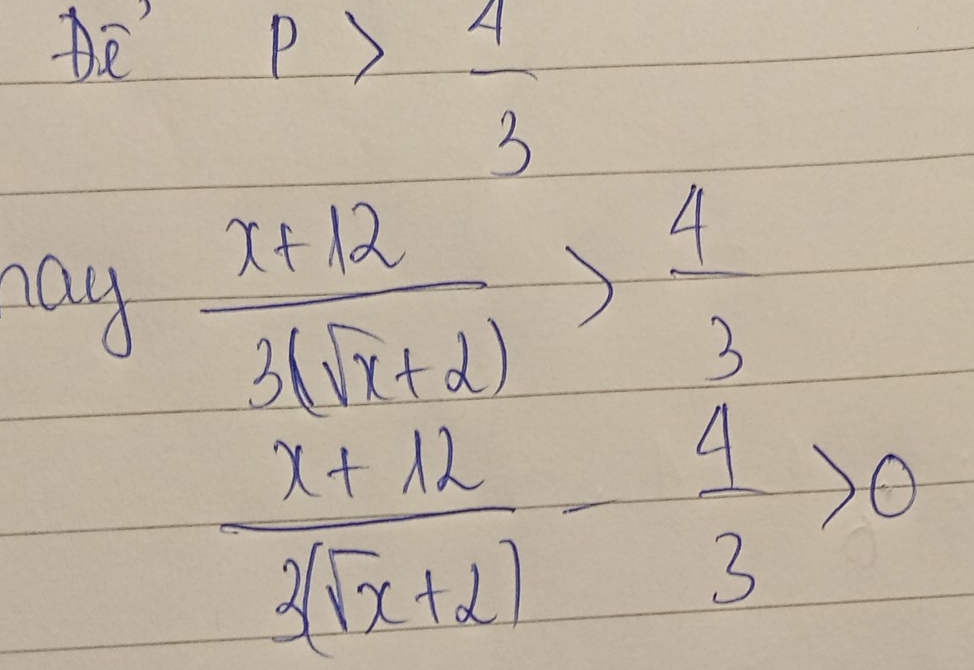 Để P > 4/3
hay x+12/3(√x+2) > 4/3
x+12/3(√x+2) - 4/3 >0